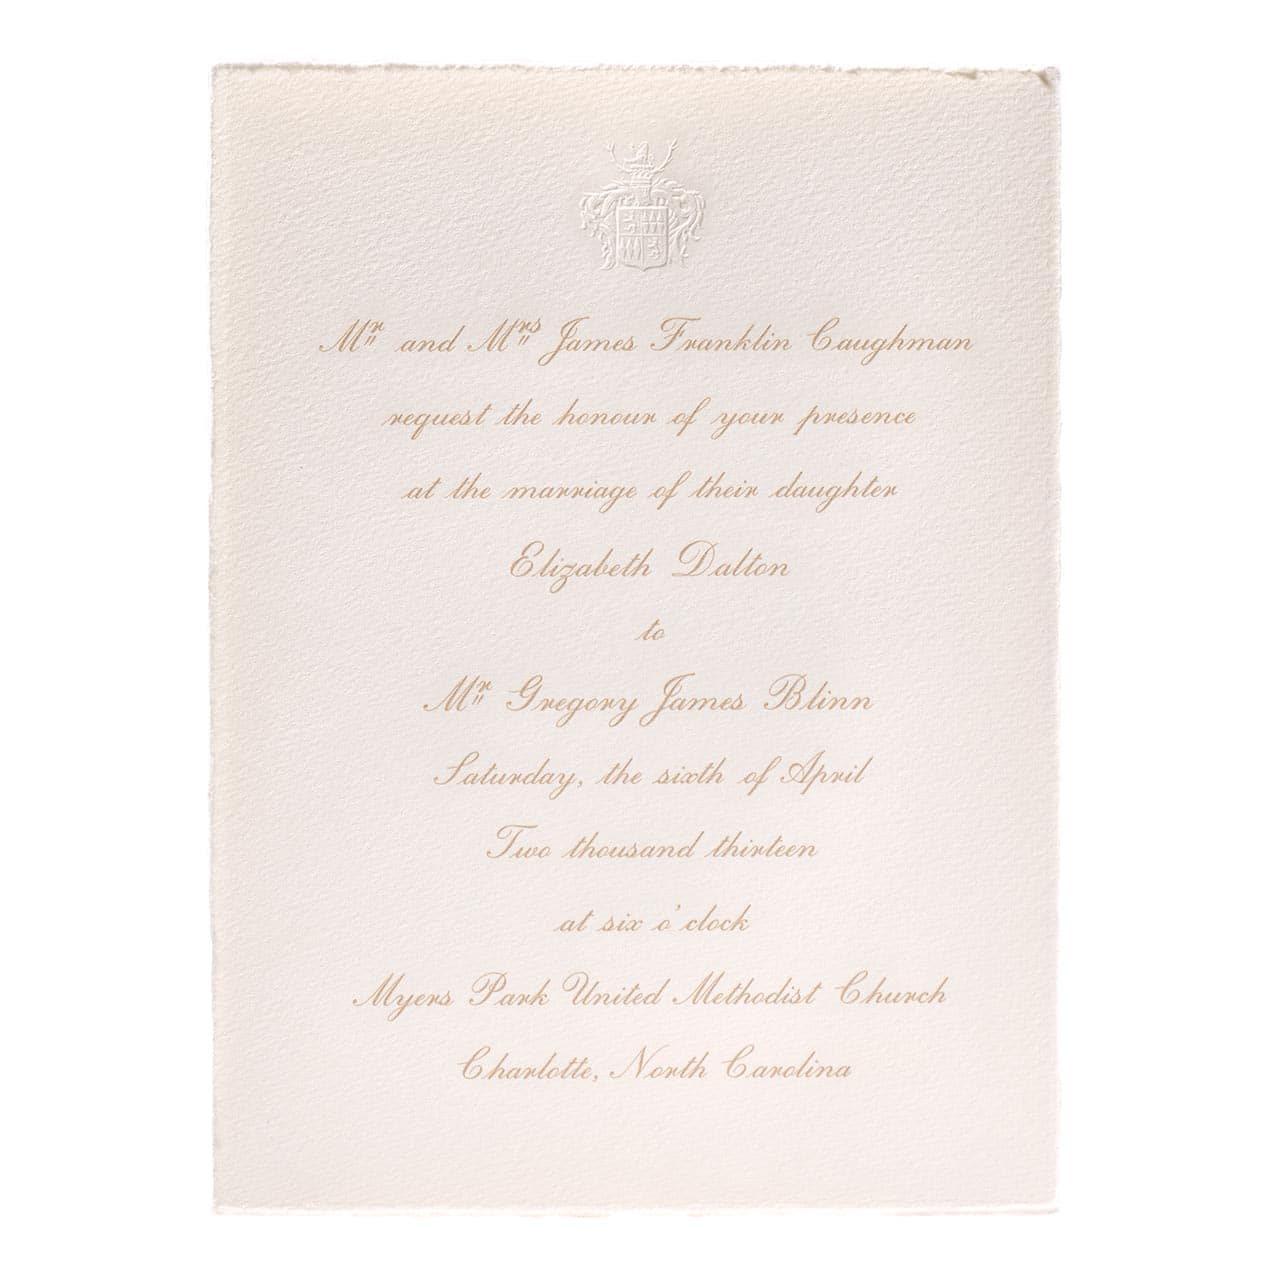 Mr and Mrs James Franklin Caughman
request the honour of your presence
at the marriage of their daughter
Elizabeth Dalton
to
Mr Gregory James Blinn
Saturday, the sixth of April
Two thousand thirteen
at six o'clock
Myers Park United Methodist Church
Charlotte, North Carolina